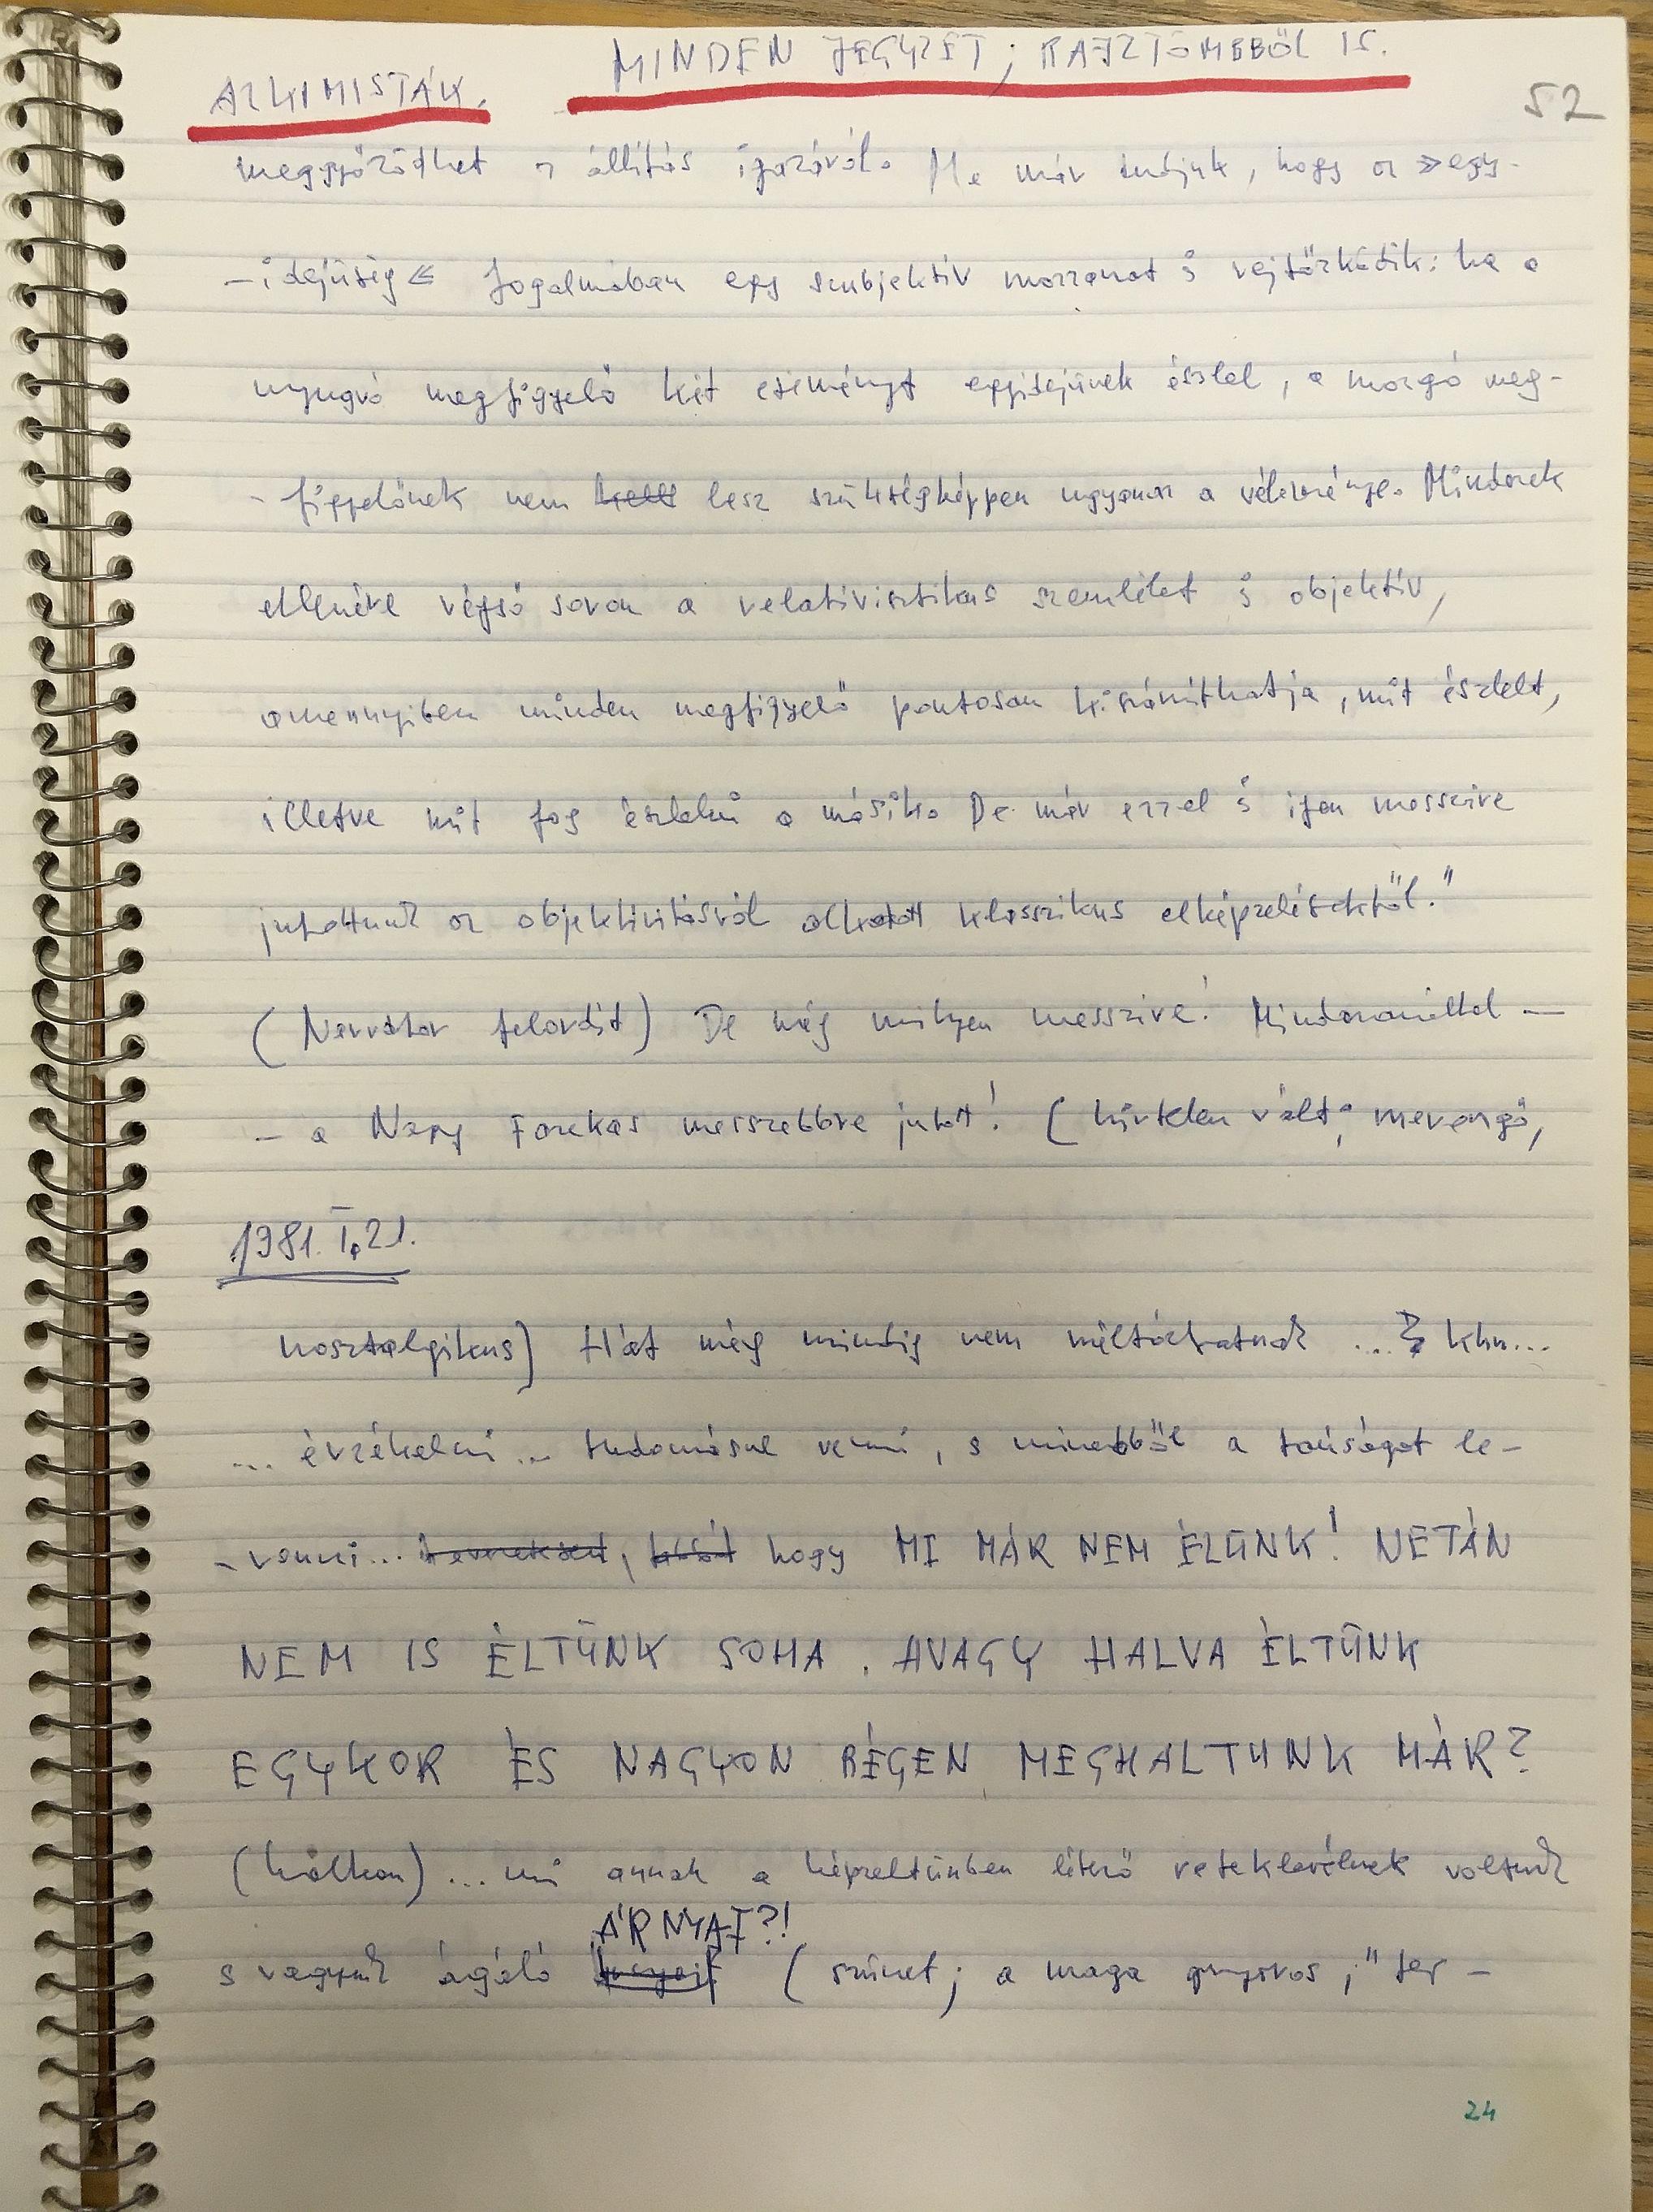 ALKIMISTÁK. MINDEN JEGYZET; RAJZTÖMBBŐL IS.
52
meggyőződhet az állítás igazáról. Ma már tudjuk, hogy az »egy-
-idejűség« fogalmában egy szubjektív mozzanat is rejtőzködik: ha a
nyugvó megfigyelő két eseményt egyidejűnek észlel, a mozgó meg-
-figyelőnek nem kell lesz szükségképpen ugyanaz a véleménye. Mindezek
ellenére végső soron a relativisztikus szemlélet is objektív,
amennyiben minden megfigyelő pontosan kiszámíthatja, mit észlelt,
illetve mit fog észlelni a másik. De már ezzel is igen messzire
jutottunk az objektivitásról alkotott klasszikus elképzelésektől."
(Narrátor felordít) De még milyen messzire! Mindazonáltal —
— a Nagy Farkas messzebbre jutott! (hirtelen vált; merengő,
1981. I. 21.
nosztalgikus) Hát még mindig nem méltóztatnak ...? khm...
... érzékelni ... tudomásul venni, s mindebből a tanúságot le-
-vonni... hogy MI MÁR NEM ÉLÜNK! NETÁN
NEM IS ÉLTÜNK SOHA. AVAGY HALVA ÉLTÜNK
EGYKOR ÉS NAGYON RÉGEN MEGHALTUNK MÁR?
(halkan) ... mi annak a képzeltünben létező voltunk
ÁRNYAI?!
s vagyunk ágáló (szünet; a maga gunyoros, "ter-
24